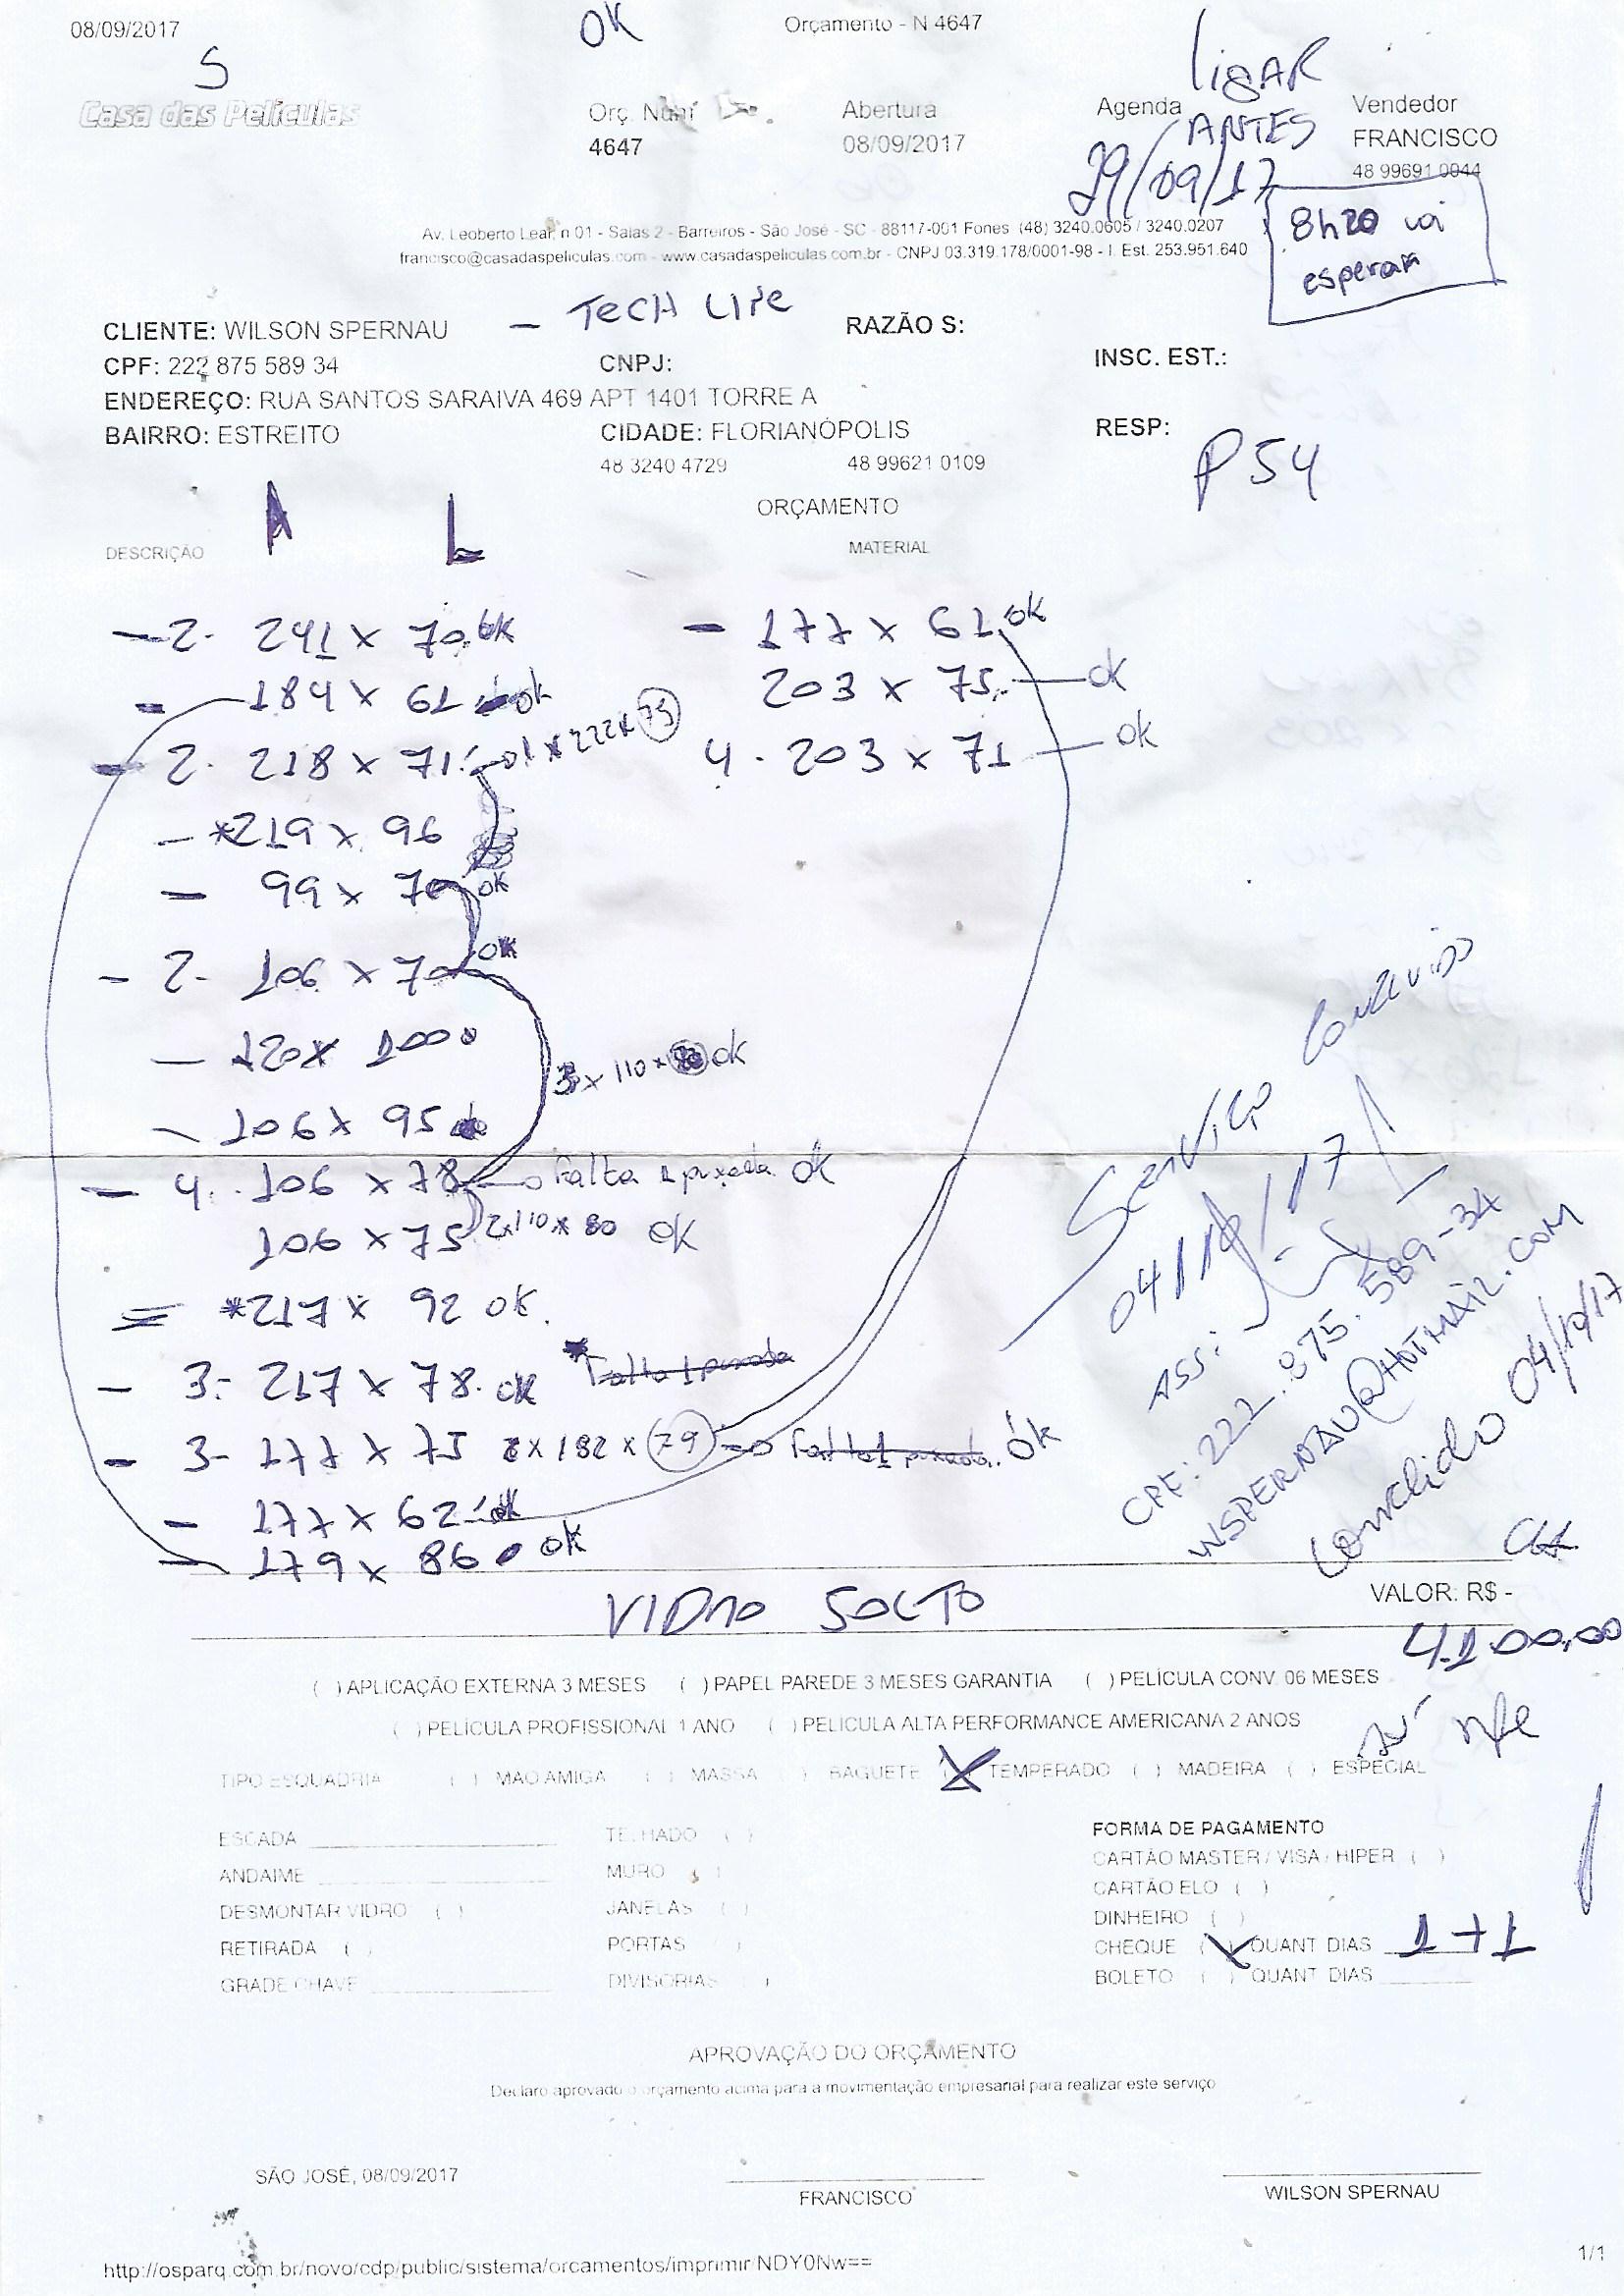 08/09/2017
OK
Orçamento - N 4647
S
LIGAR
ANTES
Casa das Películas
Orç. Num
4647
Abertura
08/09/2017
Agenda
29/09/17
Vendedor
FRANCISCO
48 99691 0944
8h20 vai
esperar
Av. Leoberto Leal, n 01 - Salas 2 - Barreiros - São José - SC - 88117-001 Fones (48) 3240.0605 / 3240.0207
francisco@casadaspeliculas.com - www.casadaspeliculas.com.br - CNPJ 03.319.178/0001-98 - I. Est. 253.951.640
CLIENTE: WILSON SPERNAU - TECH LIFE RAZÃO S:
CPF: 222 875 589 34 CNPJ: INSC. EST.:
ENDEREÇO: RUA SANTOS SARAIVA 469 APT 1401 TORRE A
BAIRRO: ESTREITO CIDADE: FLORIANÓPOLIS RESP:
48 3240 4729 48 99621 0109
P54
ORÇAMENTO
A L
DESCRIÇÃO MATERIAL
- 2 - 241 x 70 ok
- 184 x 61 ok
- 2 - 218 x 71 01 x 222 x 73
- *219 x 96
- 99 x 70 ok
- 2 - 106 x 70 ok
- 120 x 100
3 x 110 x ok
- 106 x 95
- 4 - 106 x 78 Falta 1 puxada ok
106 x 75 2x110 x 80 ok
= *217 x 92 ok.
- 3 - 217 x 78. ok * Falta 1 puxada
- 3 - 177 x 75 2 x 182 x 79 Falta 1 puxada. ók
- 177 x 62 ok
- 179 x 86 ok
- 177 x 61 ok
203 x 75 ok
4 - 203 x 71 ok
Serviço Concluido
04/10/17
ASS:
CPF: 222.875.589-34
WSPERNAU@HOTMAIL.COM
Concluido 04/10/17
VIDRO SOLTO
VALOR: R$ -
4.100,00
( ) APLICAÇÃO EXTERNA 3 MESES ( ) PAPEL PAREDE 3 MESES GARANTIA ( ) PELÍCULA CONV. 06 MESES
( ) PELÍCULA PROFISSIONAL 1 ANO ( ) PELICULA ALTA PERFORMANCE AMERICANA 2 ANOS
nfe
TIPO ESQUADRIA ( ) MAO AMIGA ( ) MASSA ( ) BAGUETE (X) TEMPERADO ( ) MADEIRA ( ) ESPECIAL
ESCADA
ANDAIME
DESMONTAR VIDRO ( )
RETIRADA ( )
GRADE CHAVE
TELHADO ( )
MURO ( )
JANELAS ( )
PORTAS ( )
DIVISORIAS ( )
FORMA DE PAGAMENTO
CARTÃO MASTER / VISA / HIPER ( )
CARTÃO ELO ( )
DINHEIRO ( )
CHEQUE (X) QUANT DIAS 1+1
BOLETO ( ) QUANT DIAS
APROVAÇÃO DO ORÇAMENTO
Declaro aprovado o orçamento acima para a movimentação empresarial para realizar este serviço
SÃO JOSÉ, 08/09/2017
FRANCISCO
WILSON SPERNAU
http://osparq.com.br/novo/cdp/public/sistema/orcamentos/imprimir/NDY0Nw==
1/1